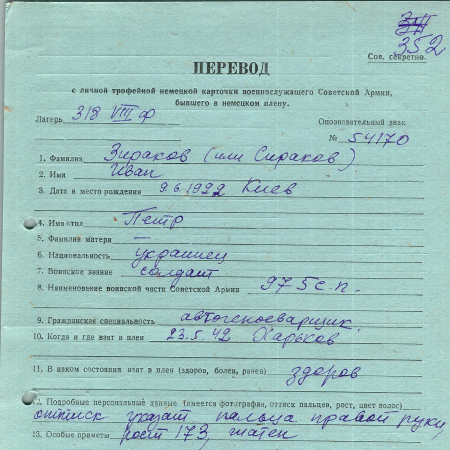 352
Сов. секретно.
ПЕРЕВОД
с личной трофейной немецкой карточки военнослужащего Советской Армии,
бывшего в немецком плену.
Лагерь 318 VIII ф
Опознавательный знак
№ 54170
1. Фамилия Зираков (или Сираков)
2. Имя Иван
3. Дата и место рождения 9.6.1922 Киев
4. Имя отца Петр
5. Фамилия матери —
6. Национальность украинец
7. Воинское звание солдат
8. Наименование воинской части Советской Армии 975 с.п.
9. Гражданская специальность автогеносварщик.
10. Когда и где взят в плен 23.5.42 Харьков
11. В каком состоянии взят в плен (здоров, болен, ранен) здоров
12. Подробные персональные данные (имеется фотография, оттиск пальцев, рост, цвет волос)
оттиск указат пальца правой руки,
13. Особые приметы рост 173, шатен